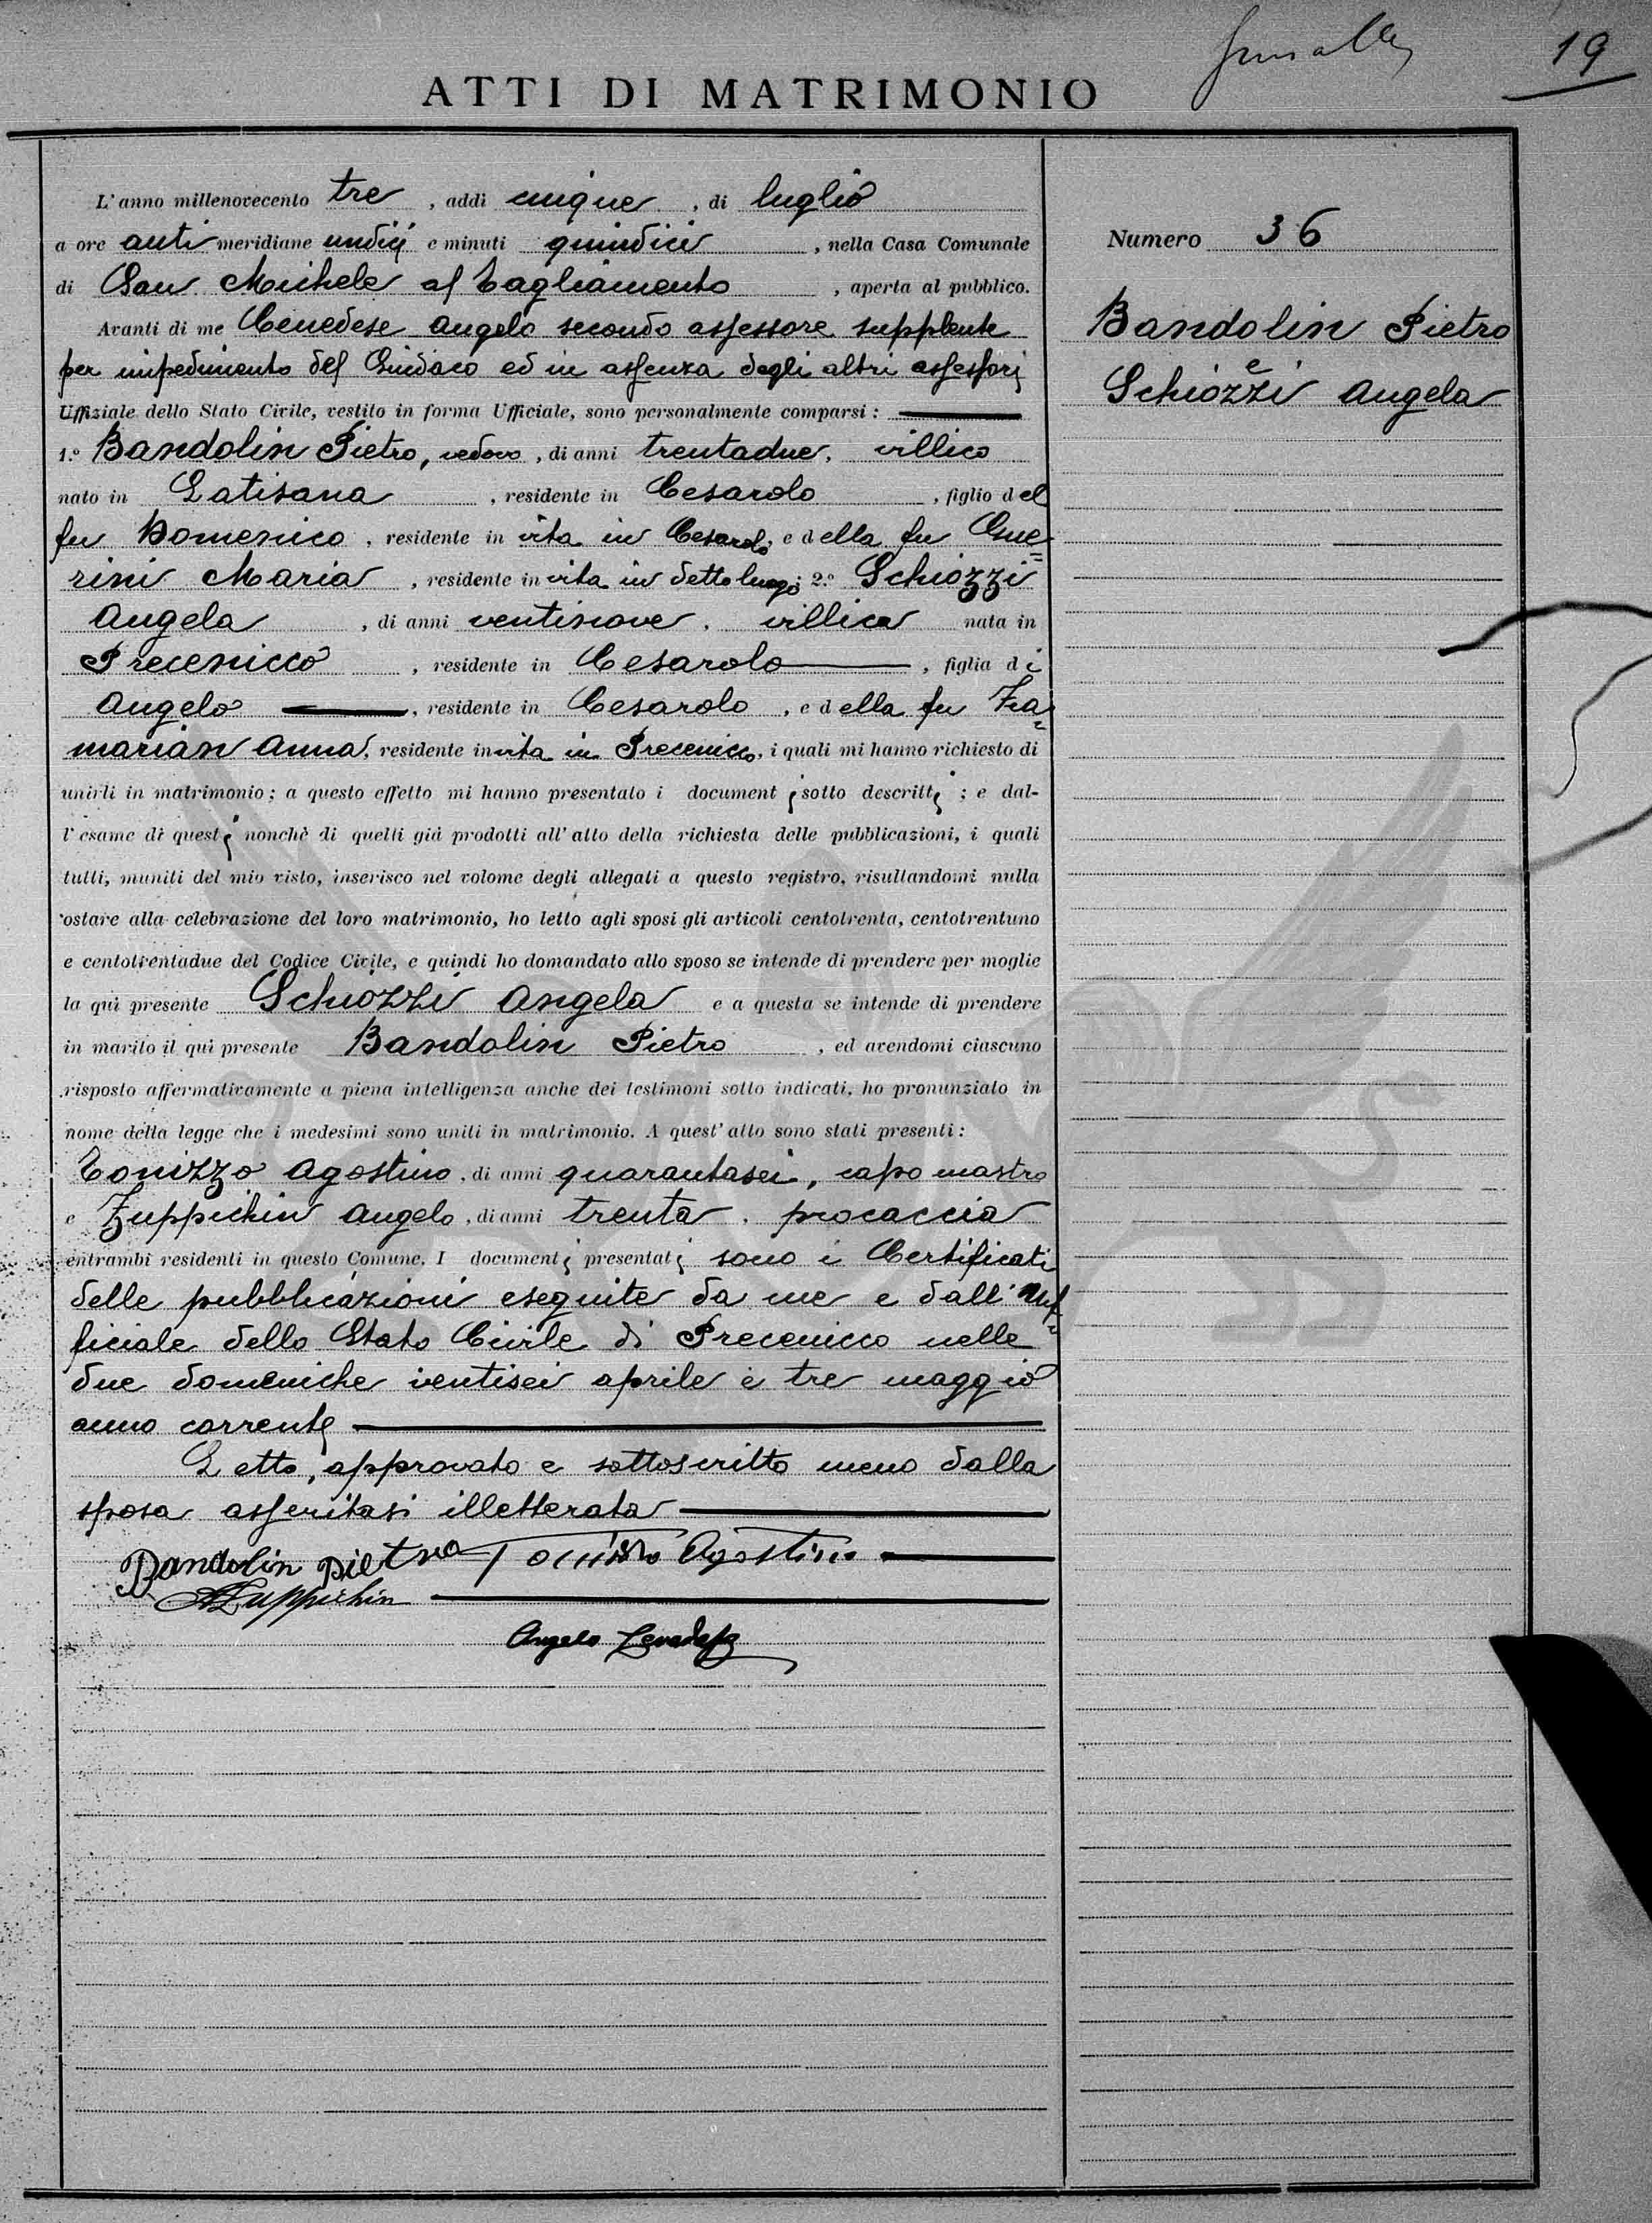 19
ATTI DI MATRIMONIO
L'anno millenovecento tre, addi cinque, di luglio
a ore anti meridiane undici e minuti quindici, nella Casa Comunale
di San Michele al Tagliamento, aperta al pubblico.
Avanti di me Cenedese Angelo secondo assessore supplente
per impedimento del Sindaco ed in assenza degli altri assessori
Uffiziale dello Stato Civile, vestito in forma Ufficiale, sono personalmente comparsi:
1.º Bandolin Pietro, vedovo, di anni trentadue, villico
nato in Latisana, residente in Cesarolo, figlio del
fu Domenico, residente in vita in Cesarolo, e della fu Gue=
rini Maria, residente in vita in detto luogo; 2.º Schiozzi
Angela, di anni ventinove, villica nata in
Precenicco, residente in Cesarolo, figlia di
Angelo, residente in Cesarolo, e della fu Fra=
marian Anna, residente in vita in Precenicco, i quali mi hanno richiesto di
unirli in matrimonio; a questo effetto mi hanno presentato i documenti sotto descritti; e dal-
l'esame di questi nonchè di quelli già prodotti all'atto della richiesta delle pubblicazioni, i quali
tutti, muniti del mio visto, inserisco nel volome degli allegati a questo registro, risultandomi nulla
ostare alla celebrazione del loro matrimonio, ho letto agli sposi gli articoli centotrenta, centotrentuno
e centotrentadue del Codice Civile, e quindi ho domandato allo sposo se intende di prendere per moglie
la quì presente Schiozzi Angela e a questa se intende di prendere
in marito il quì presente Bandolin Pietro, ed avendomi ciascuno
risposto affermativamente a piena intelligenza anche dei testimoni sotto indicati, ho pronunziato in
nome della legge che i medesimi sono uniti in matrimonio. A quest'atto sono stati presenti:
Tonizzo Agostino, di anni quarantasei, capo mastro
e Zuppichin Angelo, di anni trenta, procaccia
entrambi residenti in questo Comune. I documenti presentati sono i Certificati
delle pubblicazioni eseguite da me e dall'Uf=
ficiale dello Stato Civile di Precenicco nelle
due domeniche ventisei aprile e tre maggio
anno corrente
Letto, approvato e sottoscritto meno dalla
sposa asseritasi illetterata
Bandolin Pietro Tonizzo Agostino
AZuppichin
Angelo Cenedese
Numero 36
Bandolin Pietro
e
Schiozzi Angela